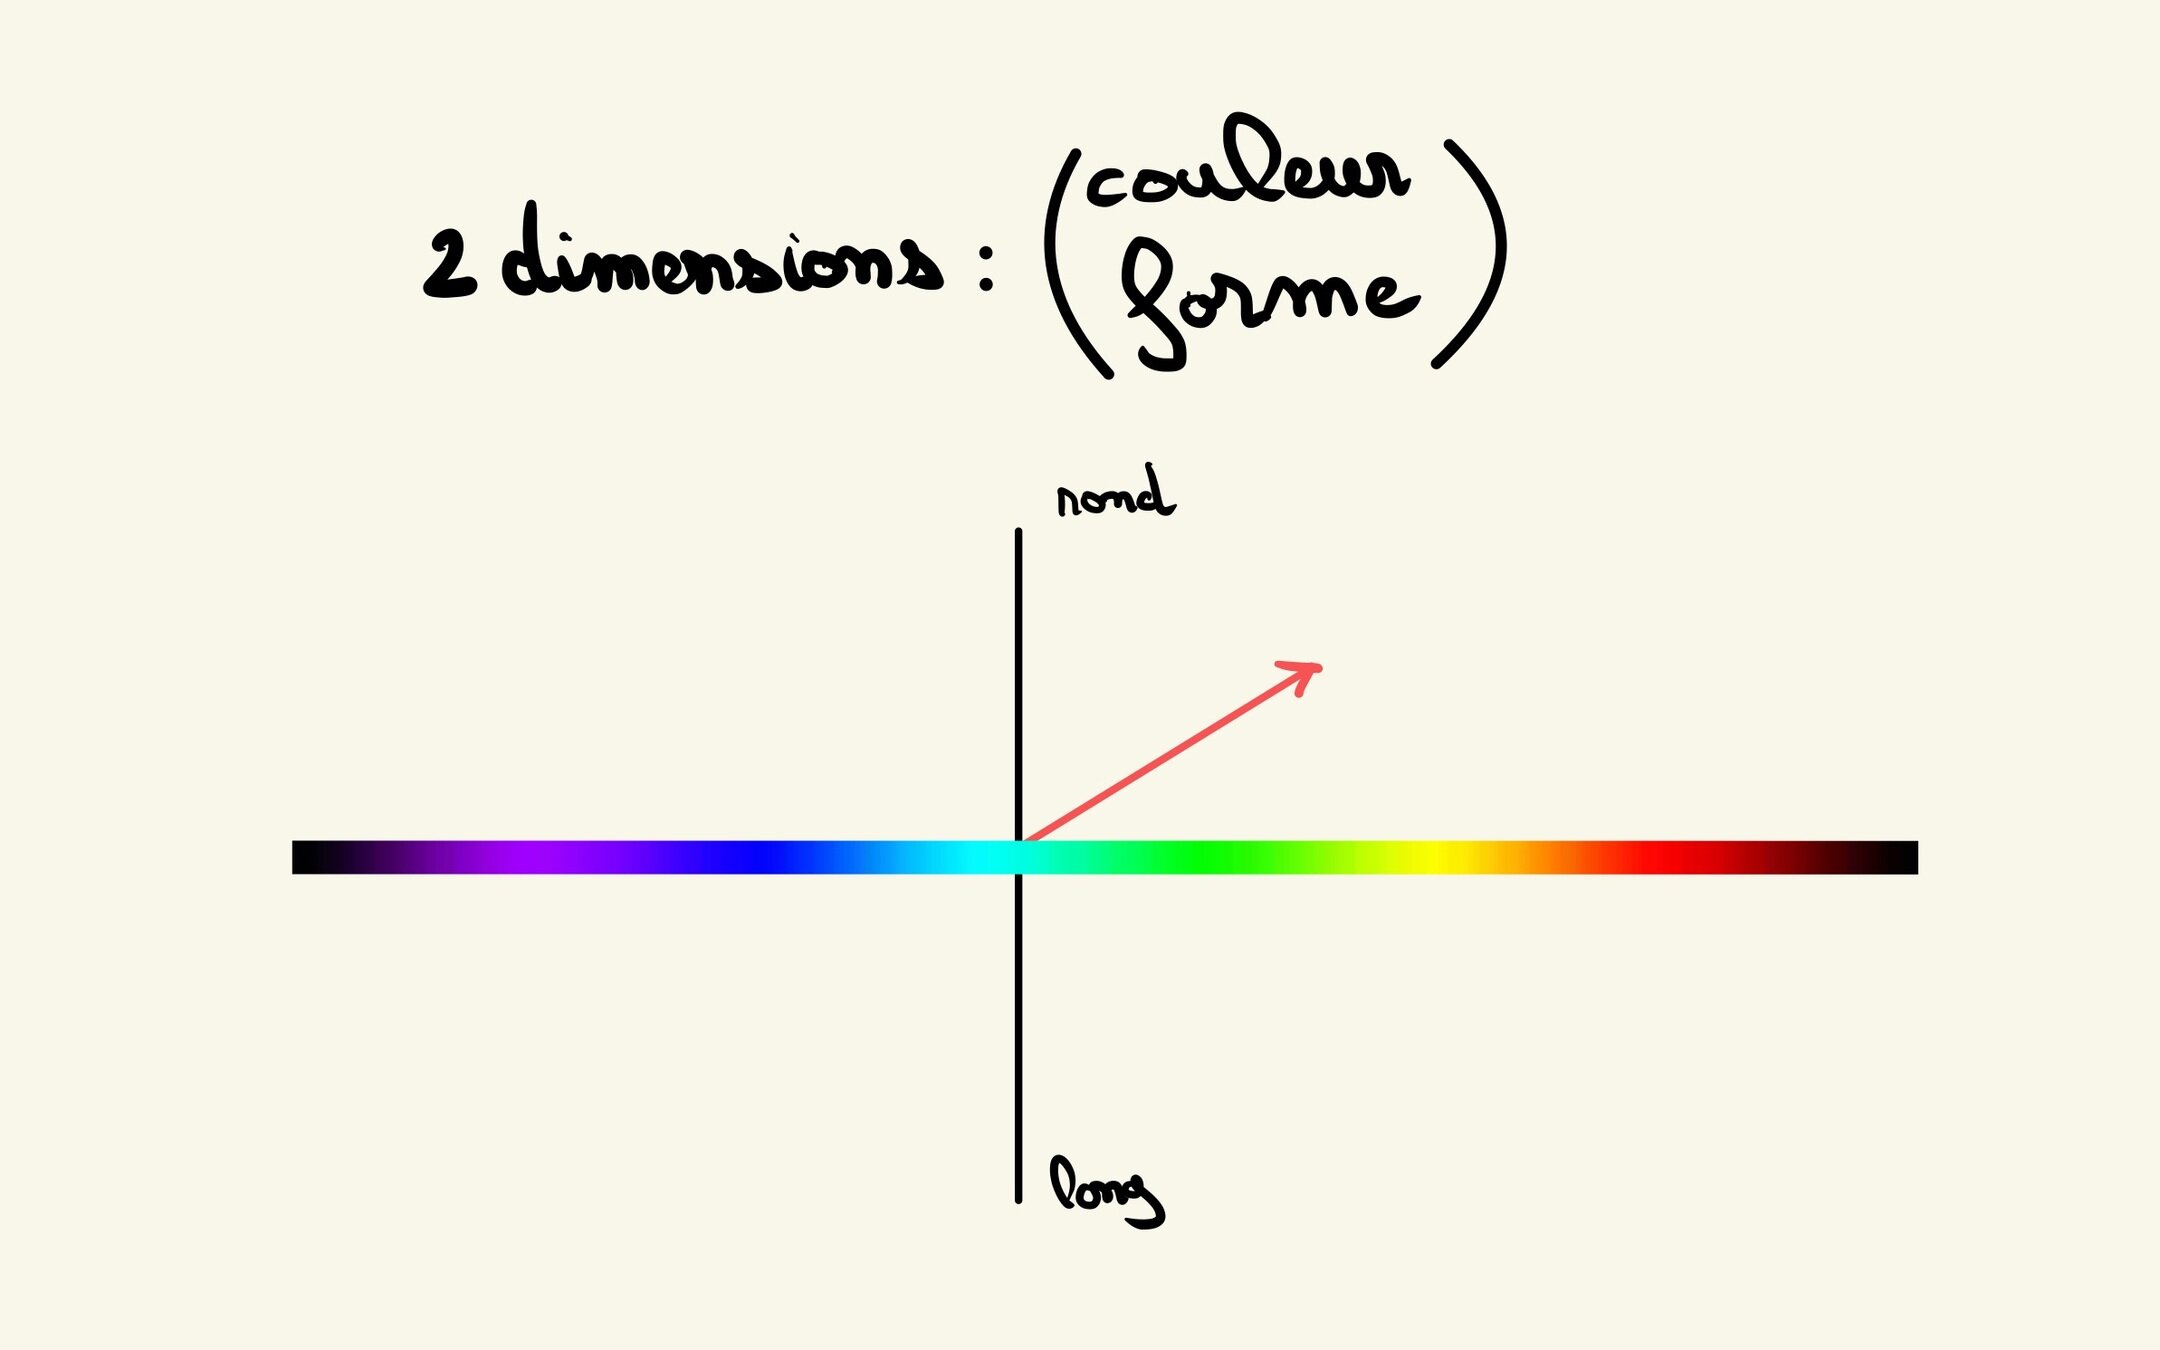 2 dimensions : (couleur
forme)
rond
long